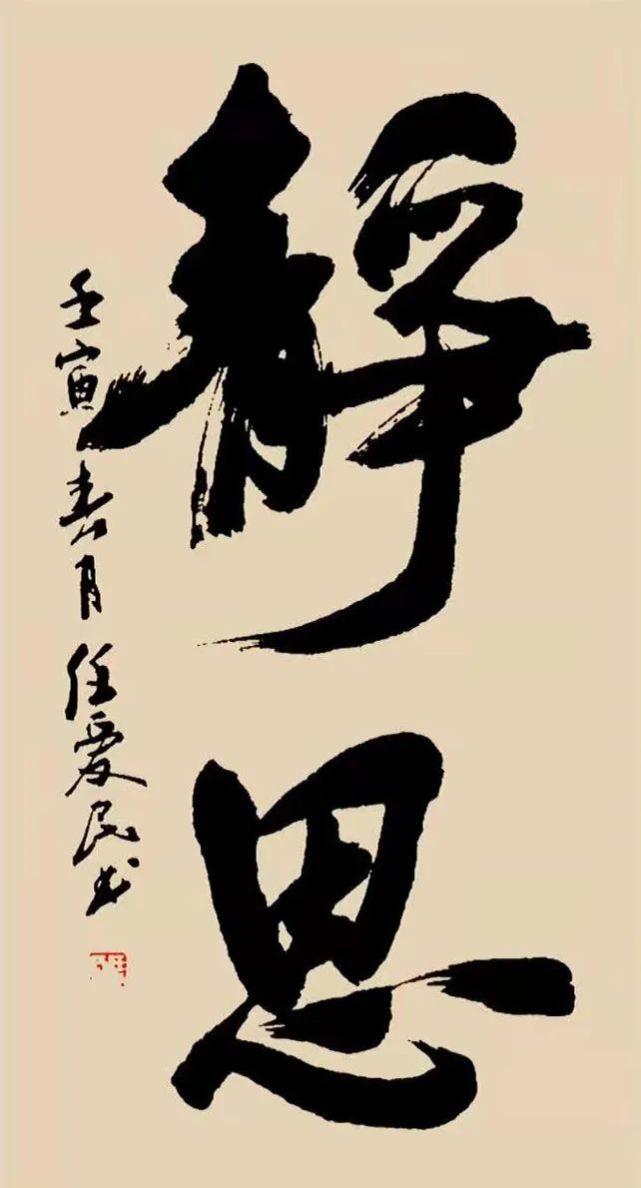 靜思
壬寅春月任爱民书